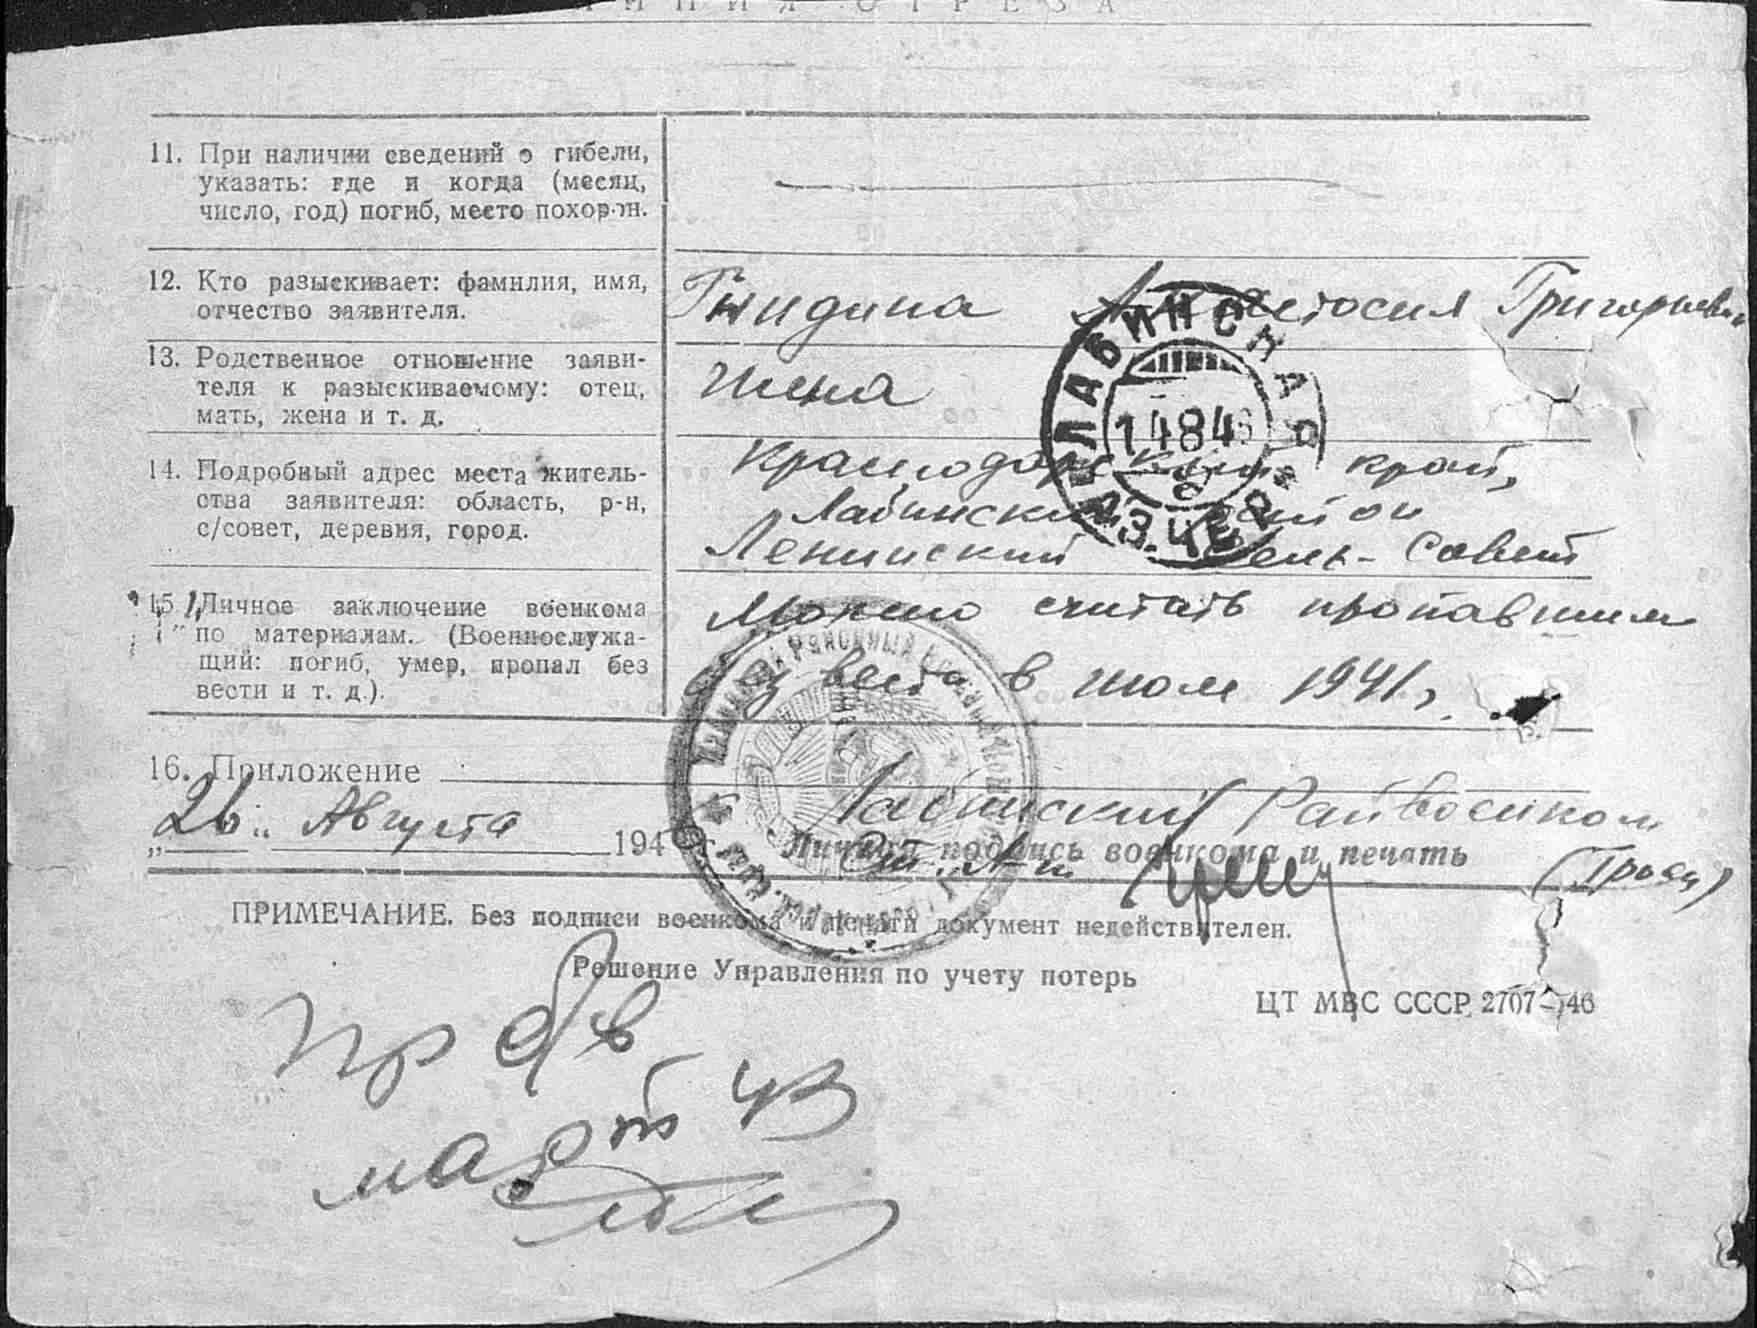 ЛИНИЯ ОТРЕЗА
11. При наличии сведений о гибели,
указать: где и когда (месяц,
число, год) погиб, место похорон.
12. Кто разыскивает: фамилия, имя,
отчество заявителя.
Григорьевна
13. Родственное отношение заяви-
теля к разыскиваемому: отец,
мать, жена и т. д.
жена
14. Подробный адрес места житель-
ства заявителя: область, р-н,
с/совет, деревня, город.
Краснодарский край,
Лабинский район
Ленинский сель-Совет
ЛАБИНСКАЯ
14846
15. Личное заключение военкома
по материалам. (Военнослужа-
щий: погиб, умер, пропал без
вести и т. д.).
Можно считать пропавшим
без вести в июле 1941 г.
16. Приложение
Лабинский Райвоенком
„26" Августа 1946
Личная подпись военкома и печать
ПРИМЕЧАНИЕ. Без подписи военкома и печати документ недействителен.
Решение Управления по учету потерь
ЦТ МВС СССР. 2707-46
пр б/в
март 43